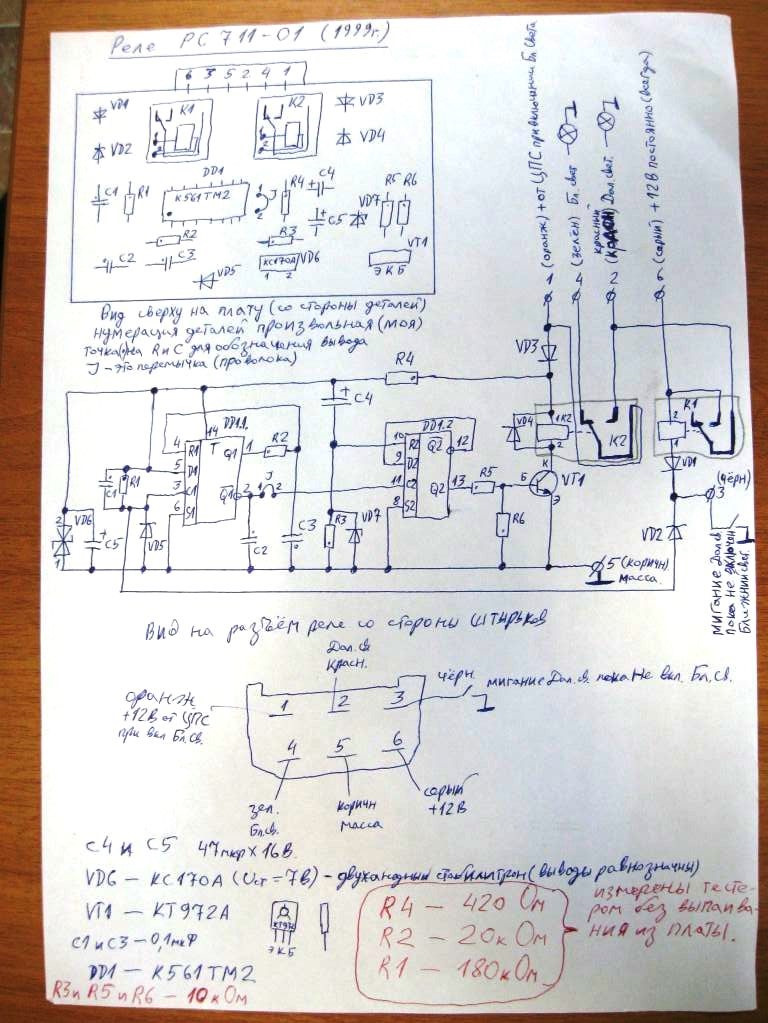 Реле РС 711-01 (1999г.)
6 3 5 2 4 1
VD1 K1 K2 VD3
VD2 VD4
DD1
C1 R1 К561ТМ2 J R4 C4 R5 R6
C5 VD7
R2 R3 VT1
C2 C3 VD5 КС170А VD6 Э К Б
1 2
Вид сверху на плату (со стороны деталей)
нумерация деталей произвольная (моя)
точка(•) на R и C для обозначения вывода
J - это перемычка (проволока)
1 (оранж) + от ЦПС при включении Бл. Света
4 (зелён) Бл. свет
2 (красный) Дал. свет.
(серый) +12В постоянно (всегда)
VD3
R4
C4
VD4 K2 K2
K1
2
1
VD1
3 (чёрн)
VD2
мигание Дал.св
пока не включен
Ближний свет.
DD1.1
14
4 R1 T Q1 1 R2
5 D1
3 C1 Q1 2 J
6 S1
C1 R1
VD6 C5 VD5 C2 C3 R3 VD7
2
1
DD1.2
10 R2 Q2 12
9 D2
11 C2
8 S2 Q2 13 R5
R6
К
Б VT1
Э
5 (коричн)
масса.
Вид на разъём реле со стороны штырьков
Дал.св
Красн.
чёрн.
мигание Дал.св. пока Не вкл. Бл.св.
оранж
+12В от ЦПС
при вкл Бл.св.
1 2 3
4 5 6
зел.
Бл.св.
коричн
масса
серый
+12В
C4 и C5 47мкр х 16В.
VD6 — КС170А (Uст = 7В) - двуханодный стабилитрон (выводы равнозначны)
VT1 — КТ972А
КТ972
Э К Б
C1 и C3 — 0,1мкФ
DD1 — К561ТМ2
R3 и R5 и R6 — 10кОм
R4 — 420 Ом
R2 — 20кОм
R1 — 180кОм
измерены тесте-
ром без выпаива-
ния из платы.